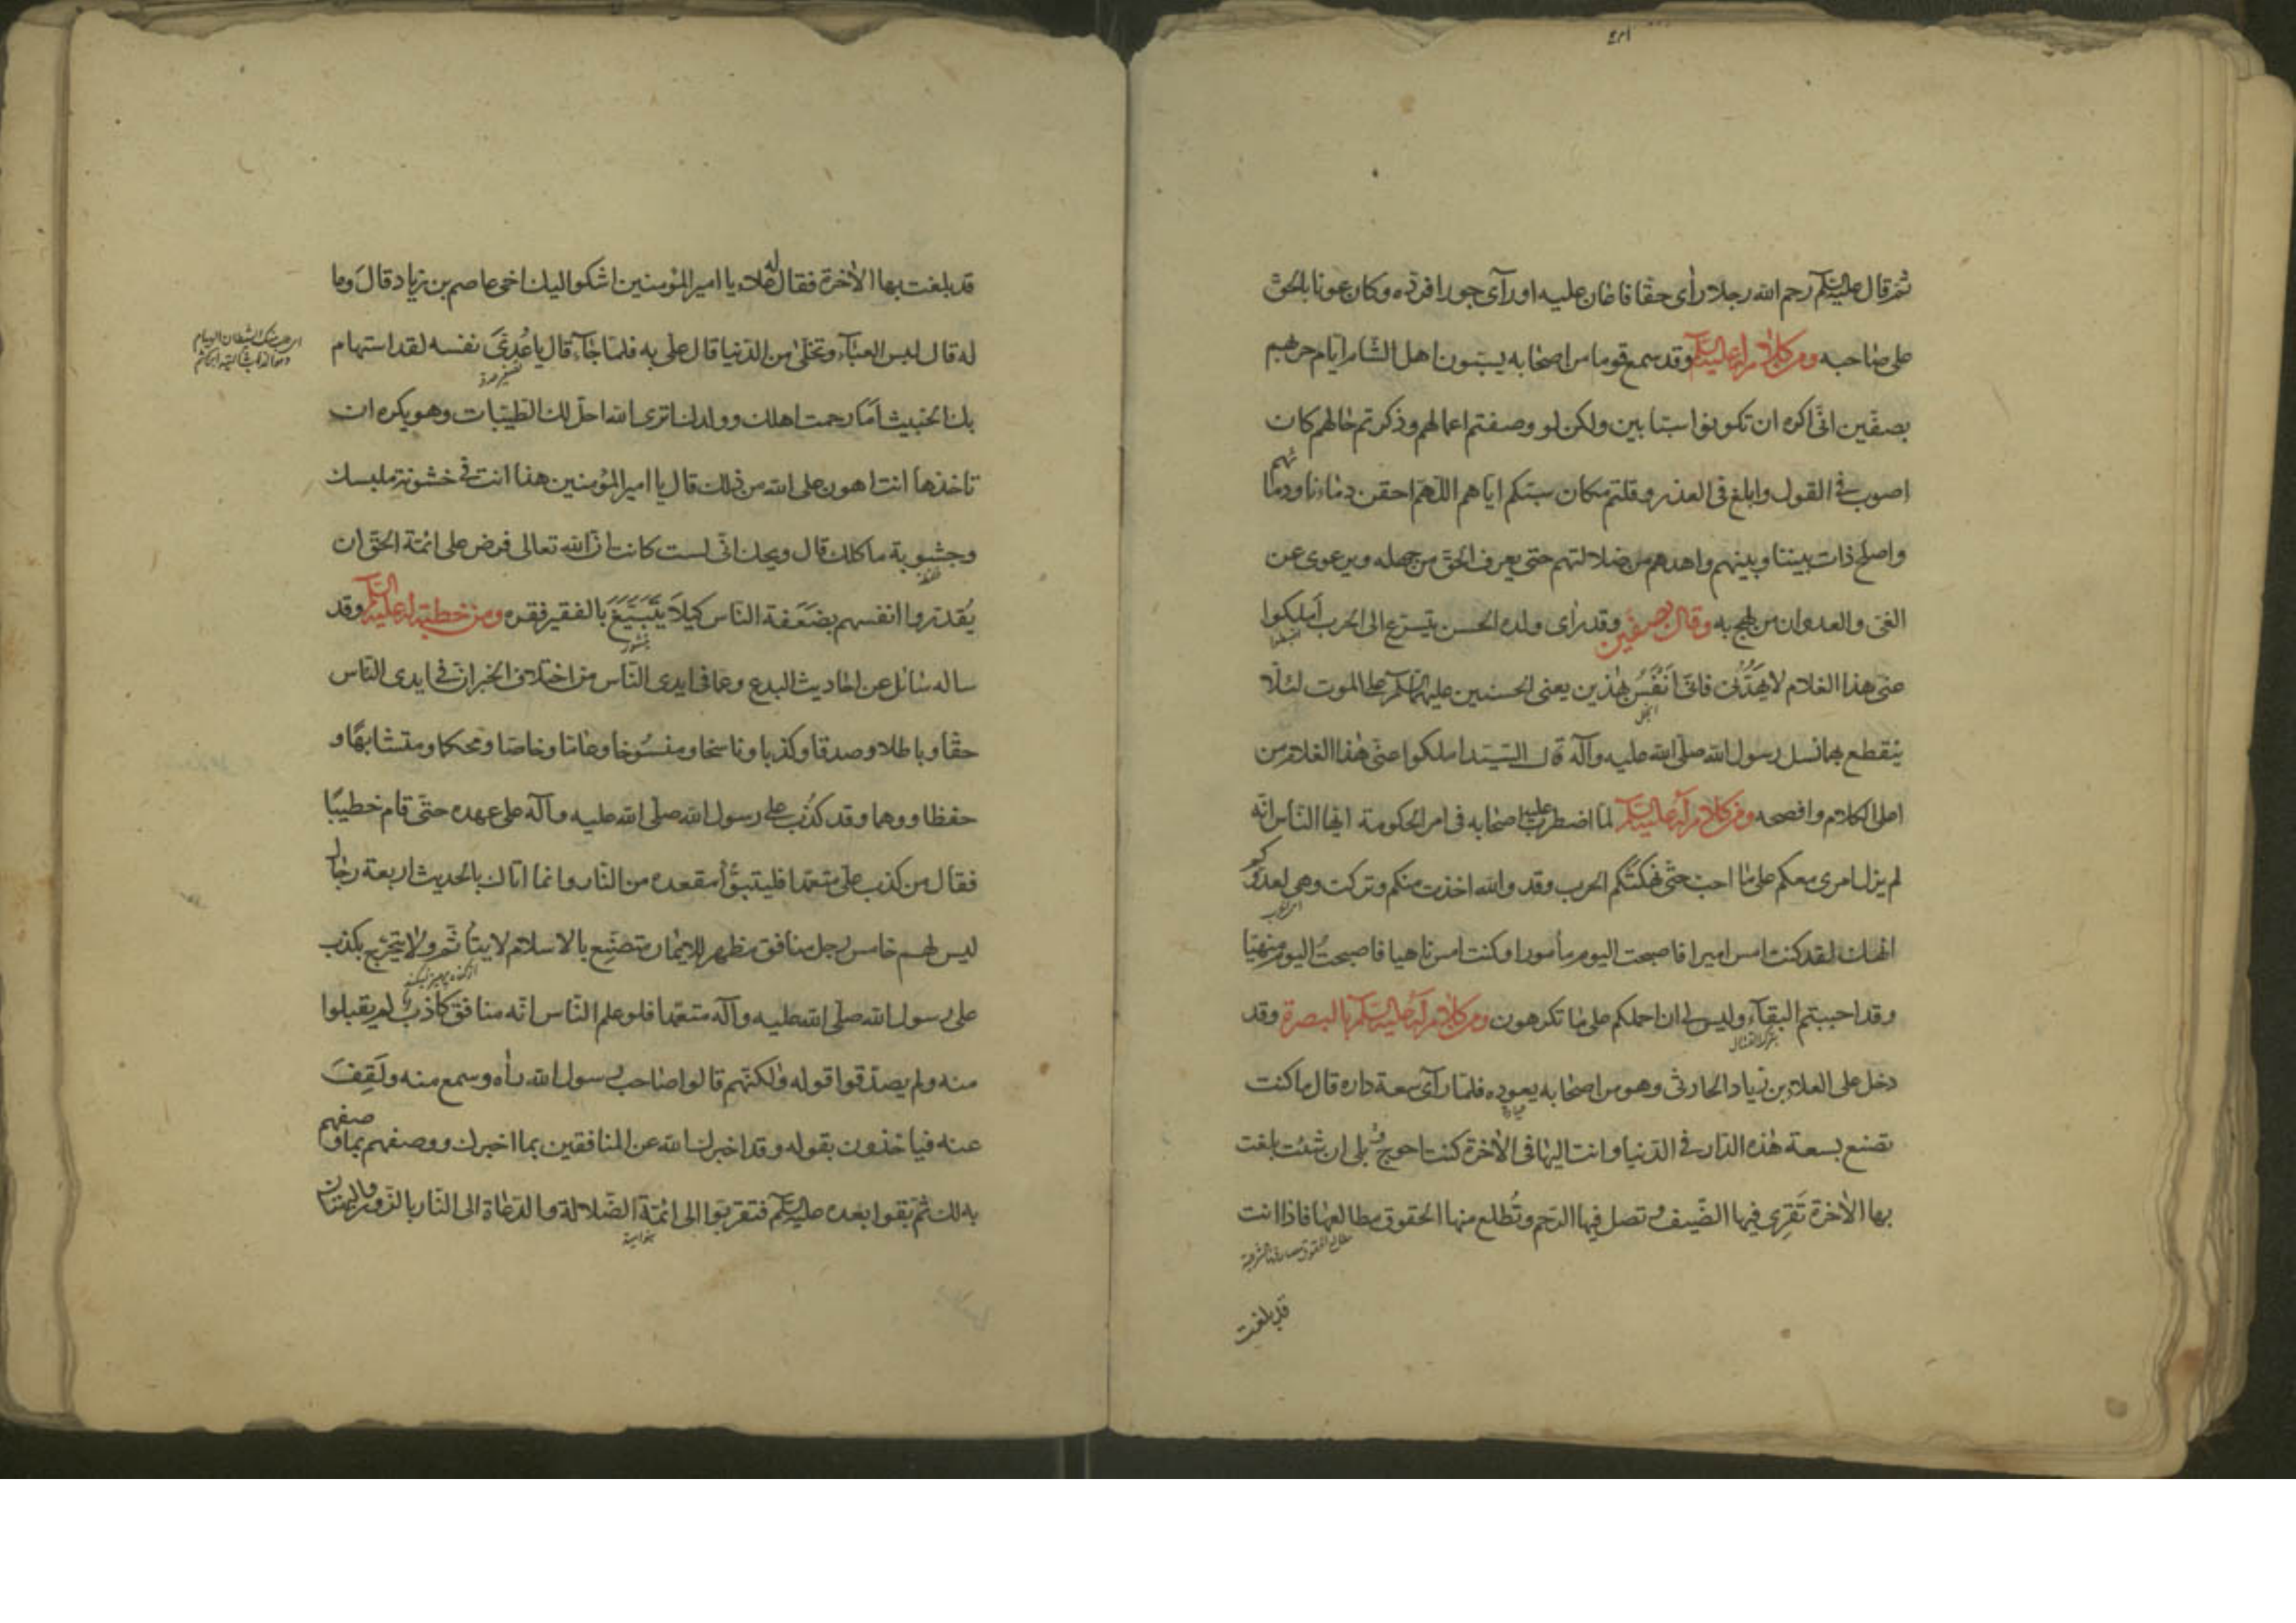 ثم قال عليه السلم رحم الله رجلا رأى حقا فاعان عليه او رآى جورا فرده وكان عونا بالحق
على صاحبه ومن كلام له عليه السلم وقد سمع قوما من اصحابه يسبّون اهل الشام ايام حربهم
بصفين انى اكره ان تكونوا سبّابين ولكن لو وصفتم اعمالهم وذكرتم حالهم كان
اصوب فى القول وابلغ فى العذر وقلتم مكان سبّكم اياهم اللهم احقن دماءنا ودمائهم
واصلح ذات بيننا وبينهم واهدهم من ضلالتهم حتى يعرف الحق من جهله ويرعوى عن
الغى والعدوان من لهج به وقال بصفين وقد رأى ولده الحسن يتسرع الى الحرب أملكوا
عنى هذا الغلام لا يَهُدّنى فانى أَنْفَسُ بهذين يعنى الحسنين عليهما السلم على الموت لئلا
ينقطع بهما نسل رسول الله صلى الله عليه وآله قال السيّد املكوا عنى هذا الغلام من
اعلى الكلام وافصحه ومن كلام له عليه السلم لما اضطرب عليه اصحابه فى امر الحكومة ايها الناس انه
لم يزل امرى معكم على ما احب حتى نهكتكم الحرب وقد والله اخذت منكم وتركت وهى لعدوكم
انهك لقد كنت امس اميرا فاصبحت اليوم مأمورا وكنت امس ناهيا فاصبحتُ اليوم منهيّا
وقد احببتم البقآء وليس لى ان احملكم على ما تكرهون ومن كلام له عليه السلم بالبصرة وقد
بترك القتال
دخل على العلاء بن زياد الحارثى وهو من اصحابه يعوده فلما رآى سعة داره قال ما كنت
تصنع بسعة هذه الدار فى الدنيا وانت اليها فى الآخرة كنت احوج و بلى ان شئت بلغت
بها الآخرة تَقرِى فيها الضّيف وتصل فيها الرحم وتُطلع منها الحقوق مطالعها فاذا انت
قد بلغت
قد بلغت بها الآخرة فقال له العلاء يا امير المؤمنين اشكو اليك اخى عاصم بن زياد قال وما
له قال لبس العبآء وتخلّى من الدنيا قال علىّ به فلما جآء قال يا عُدَىَّ نفسه لقد استهام
بك الخبيث أما رحمت اهلك وولدك اترى الله احلّ لك الطيّبات وهو يكره ان
تاخذها انت اهون على الله من ذلك قال يا امير المؤمنين هذا انت فى خشونة ملبسك
وجشوبة مأكلك قال ويحك انى لست كانت ان الله تعالى فرض على ائمة الحق ان
يُقدّروا انفسهم بضَعَفة الناس كيلا يَتَبَيَّغَ بالفقير فقره ومن خطبة له عليه السلم وقد
ساله سائل عن احاديث البدع وعما فى ايدى الناس من اختلاف الخبر ان فى ايدى الناس
حقا وباطلا وصدقا وكذبا وناسخا ومنسُوخا وعاما وخاصا ومحكما ومتشابهًا و
حفظا ووهما وقد كُذب على رسول الله صلى الله عليه وآله على عهده حتى قام خطيبًا
فقال من كذب علىّ متعمدا فليتبوّأ مقعده من النار وانما اتاك بالحديث اربعة رجال
ليس لهم خامس رجل منافق مظهر للايمان متصنّع بالاسلام لا يتأثم ولا يتحرّج يكذب
على رسول الله صلى الله عليه وآله متعمّدا فلو علم الناس انه منافق كاذب لم يقبلوا
منه ولم يصدّقوا قوله ولكنهم قالوا صاحب رسول الله رأه وسمع منه ولَقِفَ
عنه فياخذون بقوله وقد اخبرك الله عن المنافقين بما اخبرك ووصفهم بما وصفهم
به لك ثم بقوا بعده عليه السلم فتقربوا الى ائمة الضّلالة والدعاة الى النار بالزور والبهتان